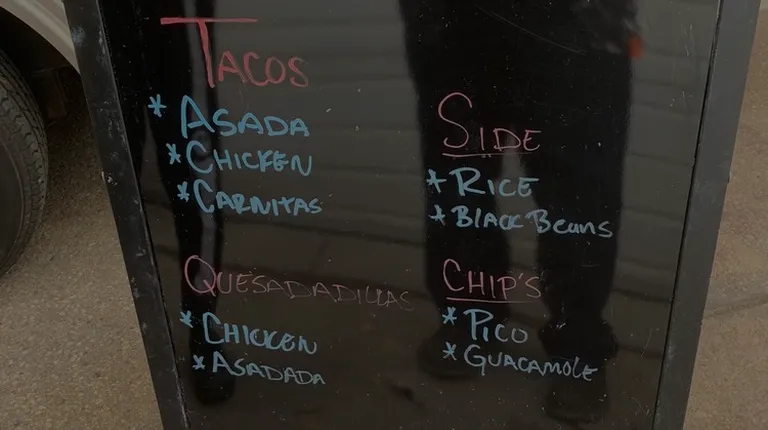 TACOS
* ASADA
* CHICKEN
* CARNITAS
QUESADADILLAS
* CHICKEN
* ASADADA
SIDE
* RICE
* BLACK BEANS
CHIP'S
* PICO
* GUACAMOLE